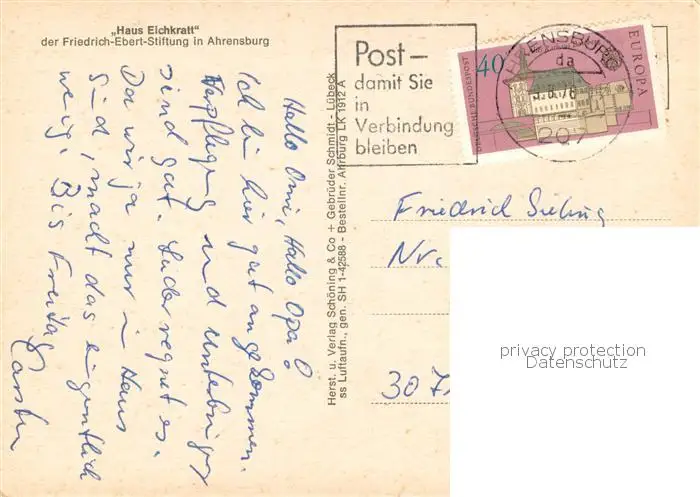 „Haus Eichkratt"
der Friedrich-Ebert-Stiftung in Ahrensburg
Hallo Omi, Hallo Opa!
Ich bin hier gut angekommen.
Verpflegung und Unterbringung
sind gut. Leider regnet es.
Da wir ja nur im Haus
sind, macht das eigentlich
wenig. Bis Freitag
Carsten
Herst. u. Verlag Schöning & Co + Gebrüder Schmidt - Lübeck
ss Luftaufn., gen. SH 1-42588 - Bestellnr. Ahrburg LK 1912 A
Post –
damit Sie
in
Verbindung
bleiben
AHRENSBURG
da
78
207
40
EUROPA
DEUTSCHE BUNDESPOST
Friedrich
Nr.
307
privacy protection
Datenschutz